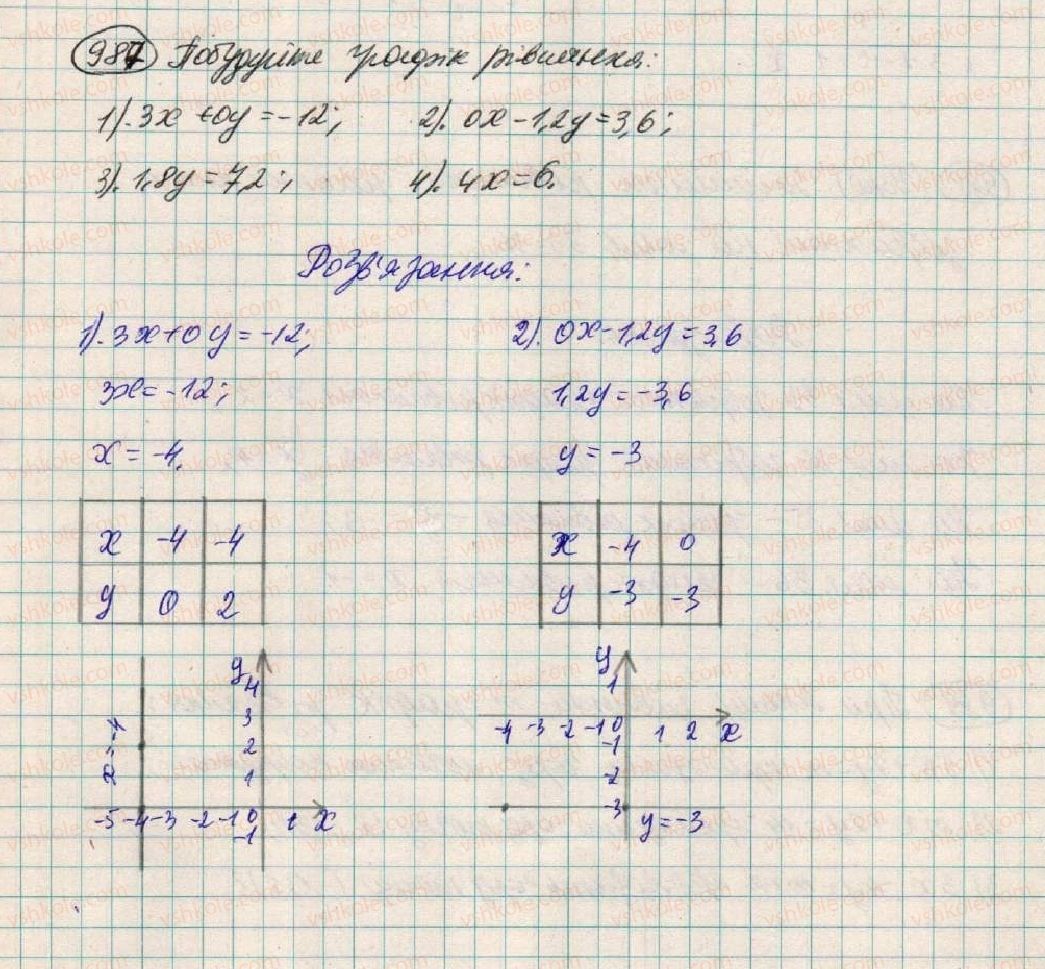 987 Побудуйте графік рівняння:
1). 3x + 0y = -12; 2). 0x - 1,2y = 3,6;
3). 1,8y = 72; 4). 4x = 6.
Розв'язання:
1). 3x + 0y = -12; 2). 0x - 1,2y = 3,6
3x = -12; 1,2y = -3,6
x = -4. y = -3
x -4 -4 x -4 0
y 0 2 y -3 -3
y y
4 1
3 -4 -3 -2 -1 0 1 2 x
x = -4 2 -1
1 -2
-5 -4 -3 -2 -1 0 1 x -3 y = -3
-1
vshkole.com